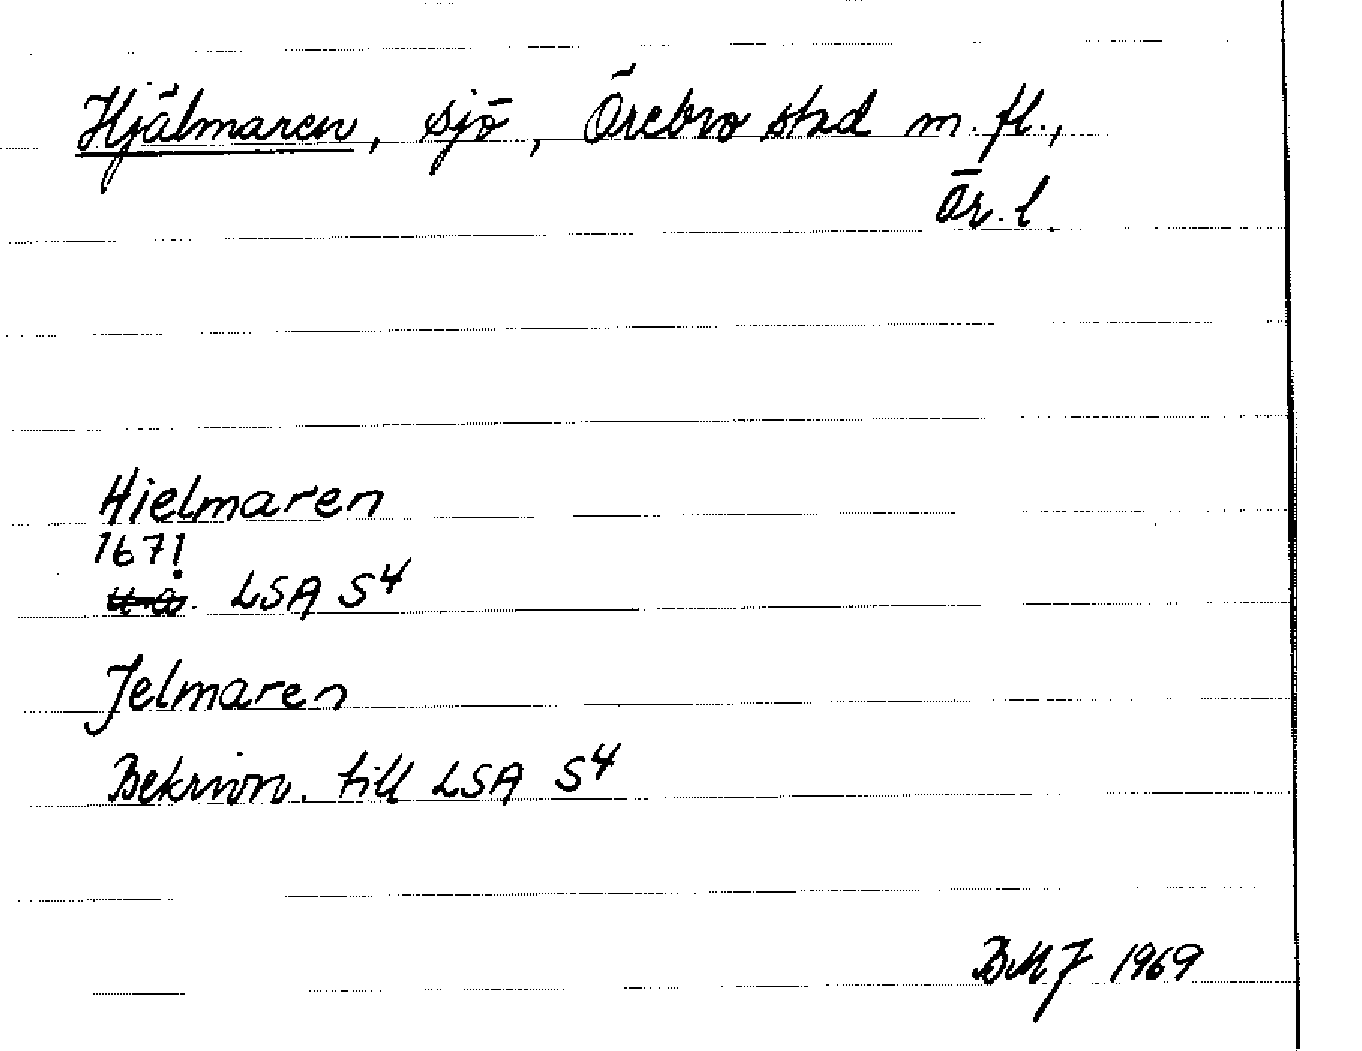 Hjälmaren, sjö, Örebro stad m. fl.,
Ör. l.
Hielmaren
1671
u.å. LSA S4
Jelmaren
Bekrivn. till LSA S4
BMJ 1969